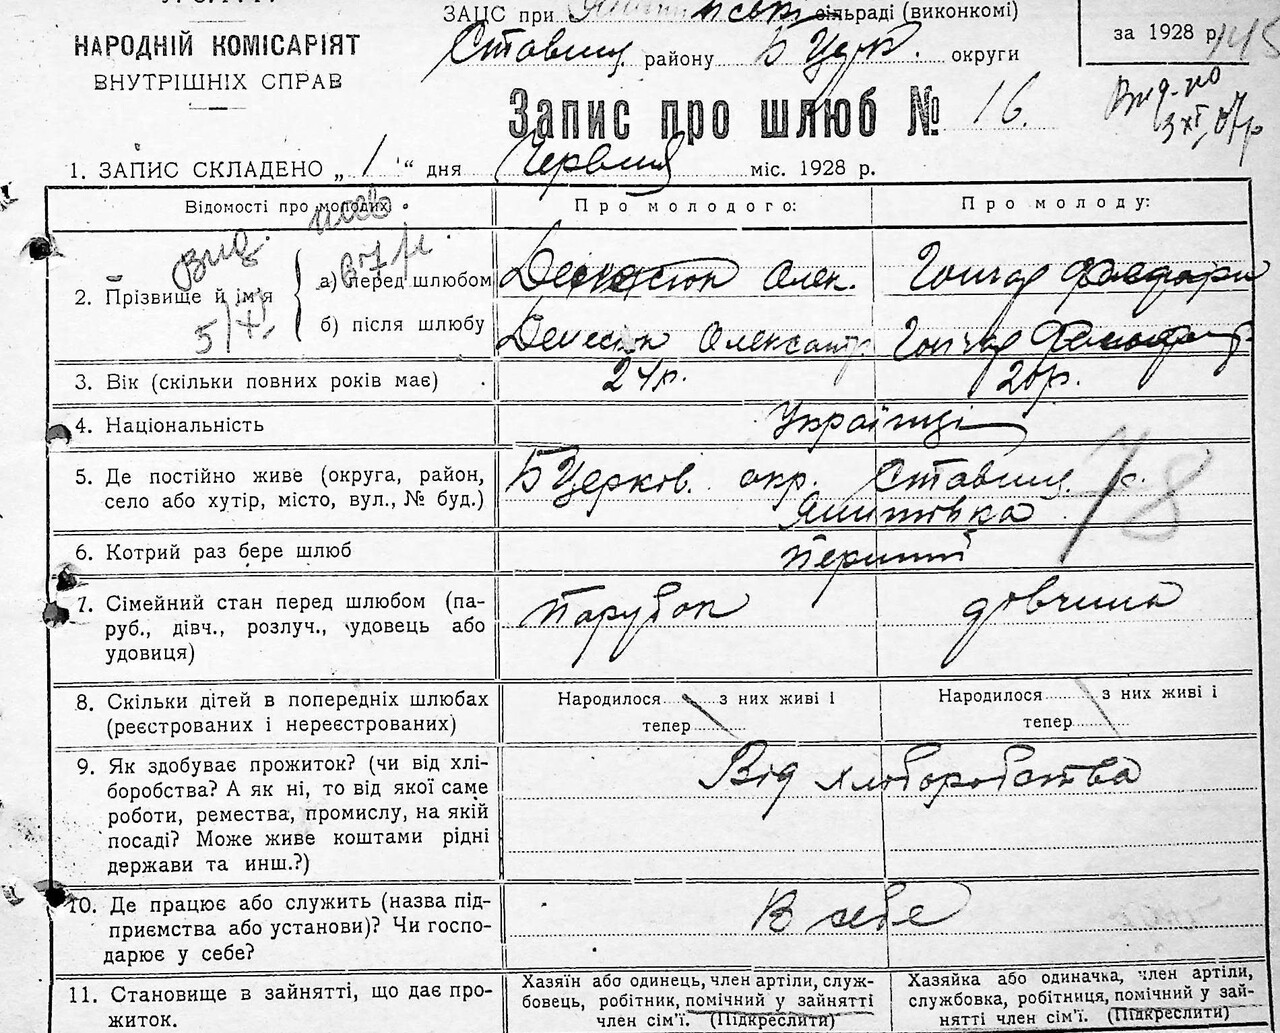 У.С.Р.Р.
НАРОДНІЙ КОМІСАРІЯТ
ВНУТРІШНІХ СПРАВ
ЗАЦС при сільраді (виконкомі)
Ставищ. району Б Церк. округи
за 1928 р.
Запис про шлюб № 16.
1. ЗАПИС СКЛАДЕНО „ 1 “ дня Червня міс. 1928 р.
Відомості про молодих: Про молодого: Про молоду:
2. Прізвище й ім'я
а) перед шлюбом Олек. Гончар
б) після шлюбу Денисюк Александр Гончар
3. Вік (скільки повних років має) 24р. 20р.
4. Національність Українці
5. Де постійно живе (округа, район, село або хутір, місто, вул., № буд.) Б Церков. окр. Ставищ. р.
Яшитовка
6. Котрий раз бере шлюб перший
7. Сімейний стан перед шлюбом (па-
руб., дівч., розлуч., удовець або
удовиця) Парубок дівчина
8. Скільки дітей в попередніх шлюбах
(реєстрованих і нереєстрованих)
Народилося з них живі і
тепер
Народилося з них живі і
тепер
9. Як здобуває прожиток? (чи від хлі-
боробства? А як ні, то від якої саме
роботи, ремества, промислу, на якій
посаді? Може живе коштами рідні
держави та инш.?)
Від хліборобства
10. Де працює або служить (назва під-
приємства або установи)? Чи госпо-
дарює у себе?
В себе
11. Становище в зайнятті, що дає про-
житок.
Хазяїн або одинець, член артіли, служ-
бовець, робітник, помічний у зайнятті
член сім'ї. (Підкреслити)
Хазяйка або одиначка, член артіли,
службовка, робітниця, помічний у зай-
нятті член сім'ї. (Підкреслити)
78